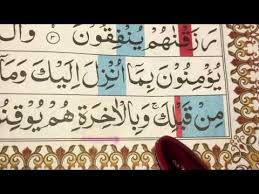 رَزَقْنٰهُمْ يُنْفِقُوْنَ ۝٣ وَالَّ
يُؤْمِنُوْنَ بِمَاۤ اُنْزِلَ اِلَيْكَ وَمَاۤ
مِنْ قَبْلِكَ ۚ وَبِالْاٰخِرَةِ هُمْ يُوْقِنُ